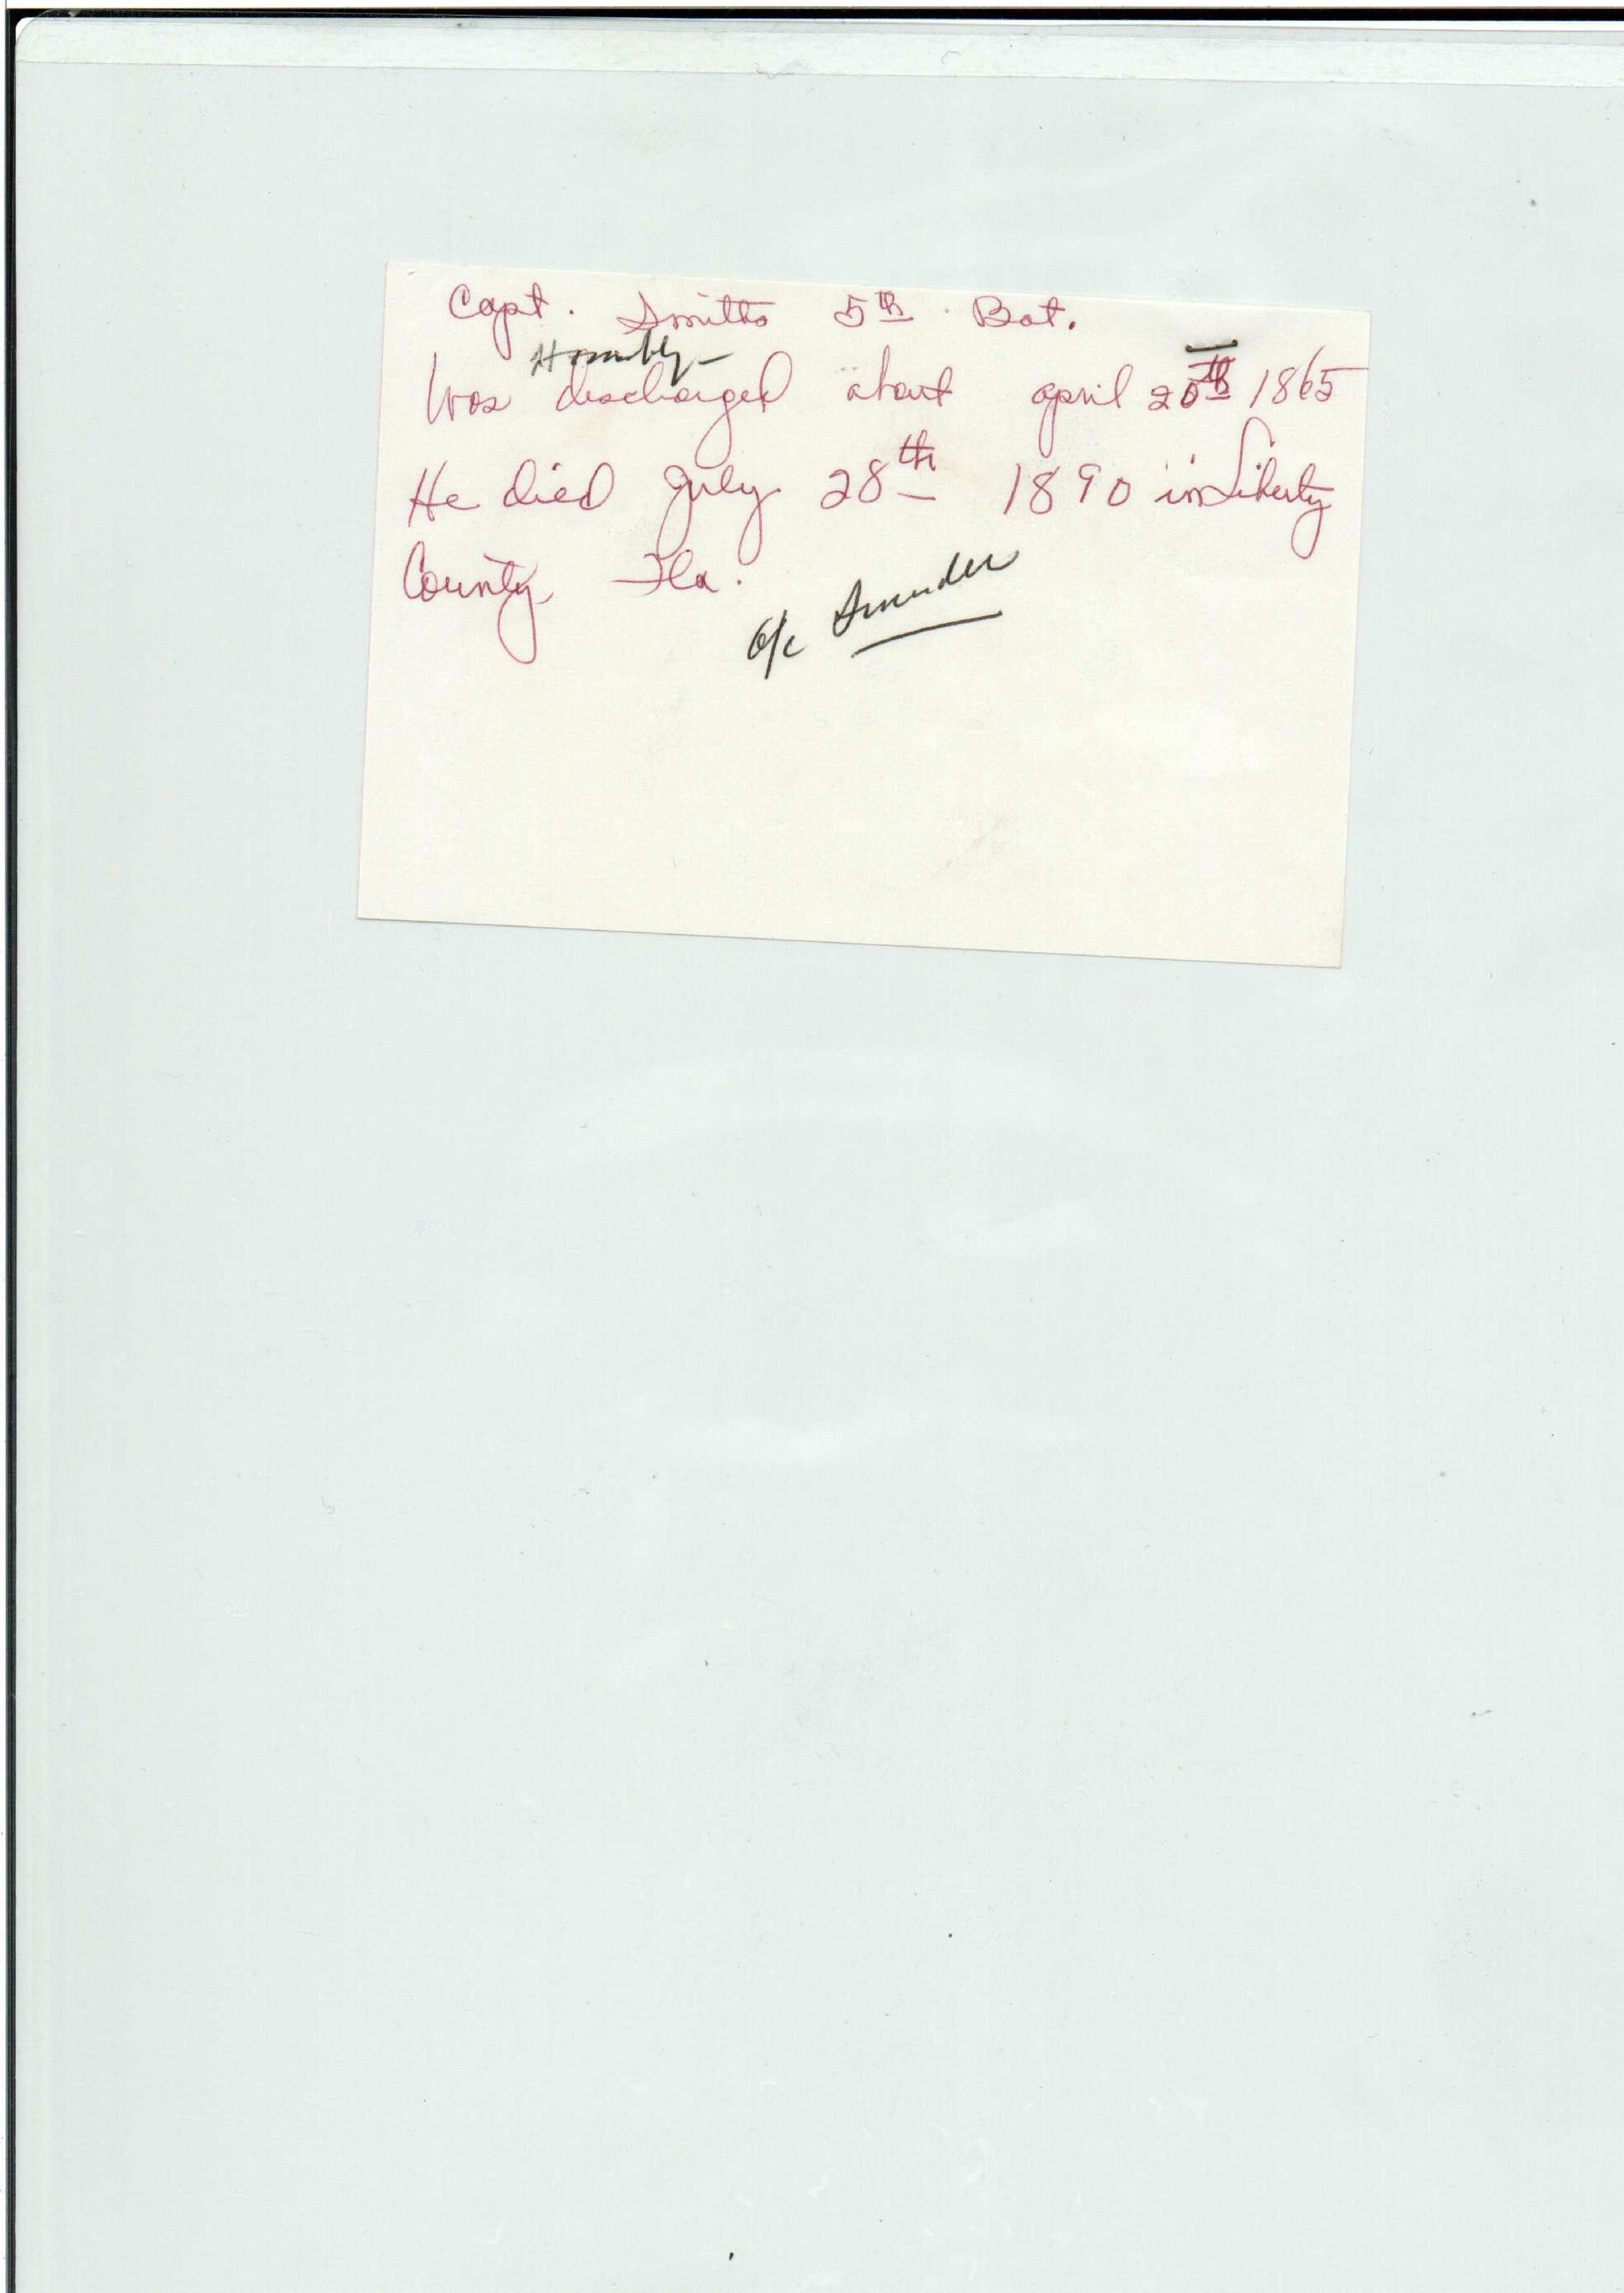 Capt. Smiths 5th Bat.
Honorably -
Was discharged about april 20th 1865
He died July 28th 1890 in Liberty
County Fla.